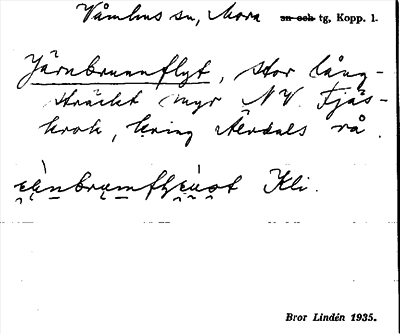 Våmhus sn, Mora sn och tg, Kopp. l.
Järnbrunnflyt, stor lång-
sträckt myr NV. Fjäs-
krok, kring Älvdals rå.
Kli.
Bror Lindén 1935.